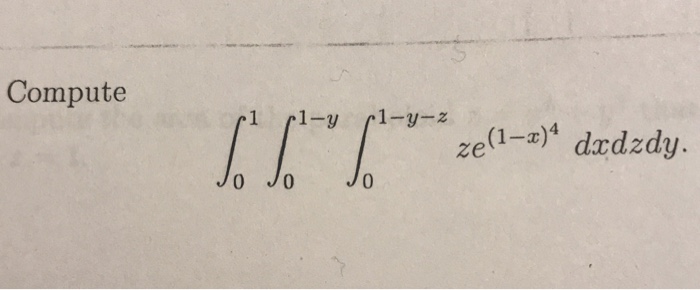 Compute
∫₀¹ ∫₀^{1−y} ∫₀^{1−y−z} ze^{(1−x)⁴} dxdzdy.